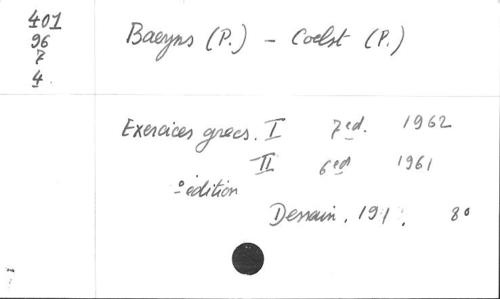 401
96
7
4.
Baeyns (P.) - Coelst (P.)
Exercices grecs. I 7ed. 1962
II 6ed 1961
° édition
Dessain. 191 . 8°